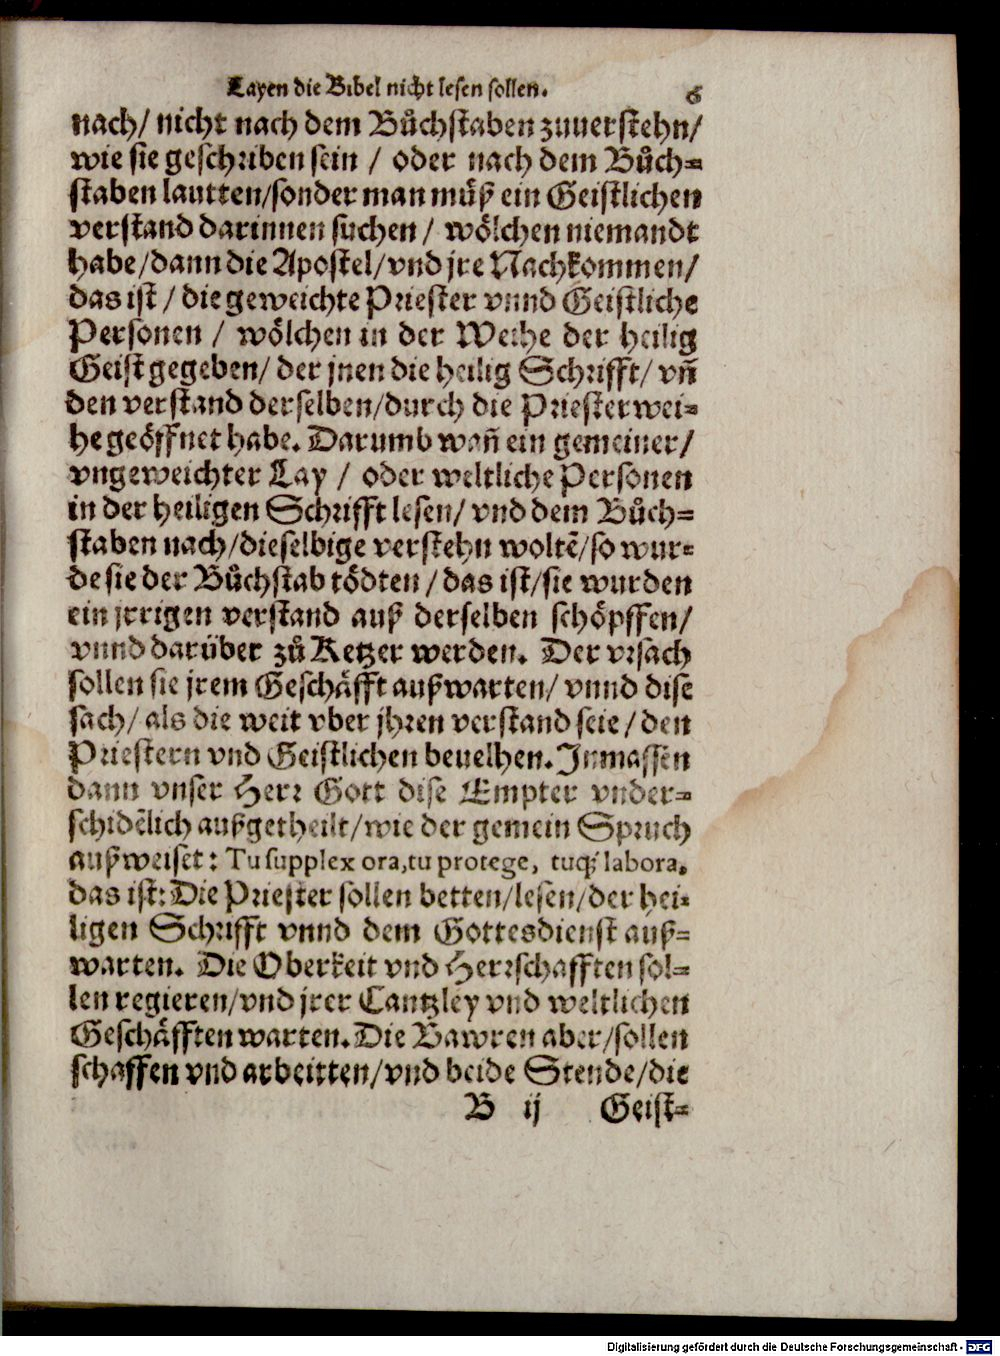 Layen die Bibel nicht lesen sollen. 6
nach/ nicht nach dem Bůchstaben zuuerstehn/
wie sie geschriben sein / oder nach dem Bůch-
staben lautten/sonder man můß ein Geistlichen
verstand darinnen suchen / wölchen niemandt
habe/dann die Apostel/vnd jre Nachkommen/
das ist / die geweichte Priester vnnd Geistliche
Personen / wölchen in der Weihe der heilig
Geist gegeben/ der jnen die heilig Schrifft/ vñ
den verstand derselben/durch die Priesterwei-
he geöffnet habe. Darumb wañ ein gemeiner/
vngeweichter Lay / oder weltliche Personen
in der heiligen Schrifft lesen/ vnd dem Bůch-
staben nach/dieselbige verstehn woltẽ/so wur-
de sie der Bůchstab tödten / das ist/sie wurden
ein jrrigen verstand auß derselben schöpffen/
vnnd darüber zů Ketzer werden. Der vrsach
sollen sie jrem Geschäfft außwarten/ vnnd dise
sach/ als die weit vber jhren verstand seie / den
Priestern vnd Geistlichen beuelhen. Inmassen
dann vnser Herr Gott dise Empter vnder-
schidẽlich außgetheilt/wie der gemein Spruch
außweiset: Tu supplex ora, tu protege, tuq́; labora.
das ist: Die Priester sollen betten/lesen/der hei-
ligen Schrifft vnnd dem Gottesdienst auß-
warten. Die Oberkeit vnd Herrschafften sol-
len regieren/vnd jrer Cantzley vnd weltlichen
Geschäfften warten. Die Bawren aber/sollen
schaffen vnd arbeitten/vnd beide Stende/die
B ij Geist-
Digitalisierung gefördert durch die Deutsche Forschungsgemeinschaft - DFG